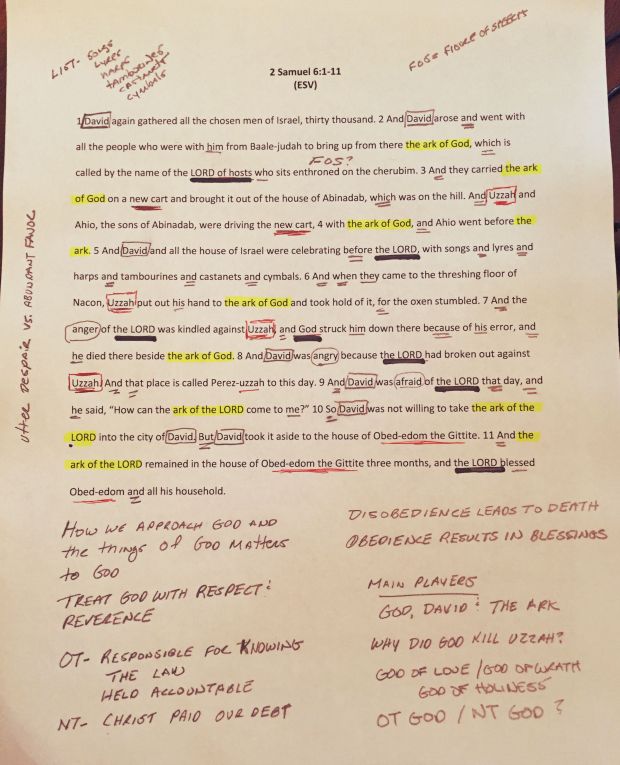 LIST- SONGS
LYRES
HARPS
TAMBOURINES
CASTANETS
CYMBALS
FOS= FIGURE OF SPEECH
2 Samuel 6:1-11
(ESV)
1 David again gathered all the chosen men of Israel, thirty thousand. 2 And David arose and went with
all the people who were with him from Baale-judah to bring up from there the ark of God, which is
FOS?
called by the name of the LORD of hosts who sits enthroned on the cherubim. 3 And they carried the ark
of God on a new cart and brought it out of the house of Abinadab, which was on the hill. And Uzzah and
Ahio, the sons of Abinadab, were driving the new cart, 4 with the ark of God, and Ahio went before the
ark. 5 And David and all the house of Israel were celebrating before the LORD, with songs and lyres and
harps and tambourines and castanets and cymbals. 6 And when they came to the threshing floor of
Nacon, Uzzah put out his hand to the ark of God and took hold of it, for the oxen stumbled. 7 And the
anger of the LORD was kindled against Uzzah, and God struck him down there because of his error, and
he died there beside the ark of God. 8 And David was angry because the LORD had broken out against
Uzzah. And that place is called Perez-uzzah to this day. 9 And David was afraid of the LORD that day, and
he said, “How can the ark of the LORD come to me?” 10 So David was not willing to take the ark of the
LORD into the city of David. But David took it aside to the house of Obed-edom the Gittite. 11 And the
ark of the LORD remained in the house of Obed-edom the Gittite three months, and the LORD blessed
Obed-edom and all his household.
UTTER DESPAIR VS. ABUNDANT FAVOR
HOW WE APPROACH GOD AND
the things of GOD MATTERS
to GOD
TREAT GOD WITH RESPECT &
REVERENCE
OT- RESPONSIBLE FOR KNOWING
THE LAW
HELD ACCOUNTABLE
NT- CHRIST PAID OUR DEBT
DISOBEDIENCE LEADS TO DEATH
OBEDIENCE RESULTS IN BLESSINGS
MAIN PLAYERS
GOD, DAVID & THE ARK
WHY DID GOD KILL UZZAH?
GOD OF LOVE / GOD OF WRATH
GOD OF HOLINESS
OT GOD / NT GOD?